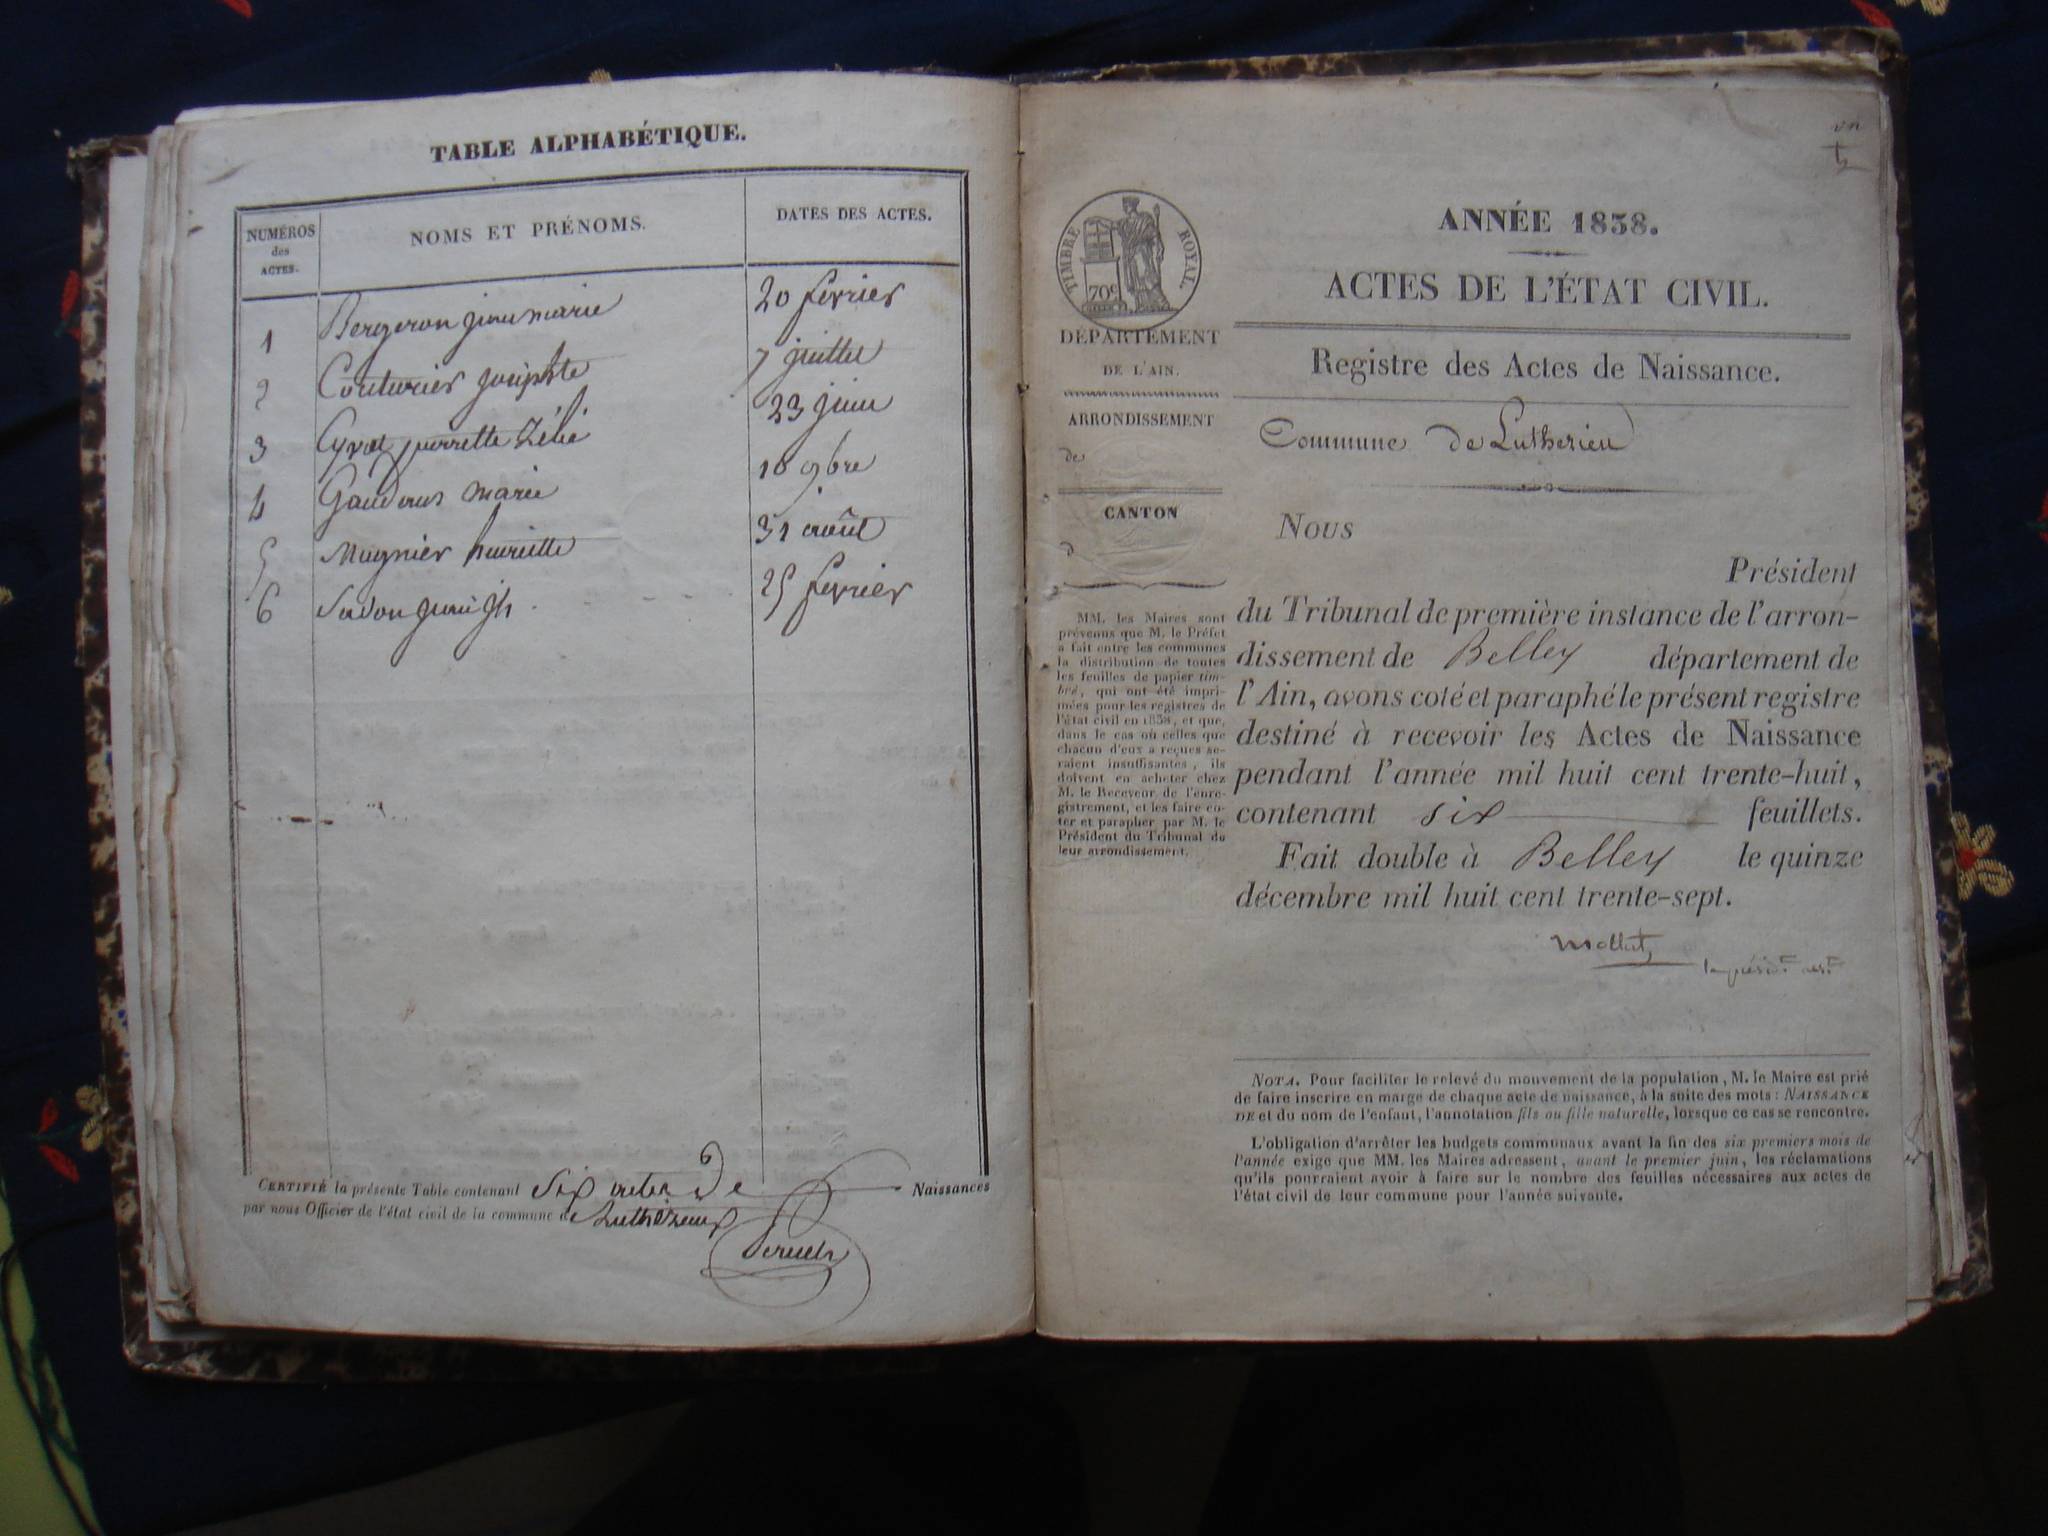 TABLE ALPHABÉTIQUE.
NUMÉROS des ACTES.
NOMS ET PRÉNOMS.
DATES DES ACTES.
1 Bergeron jeanmarie 20 fevrier
2 Couturier josephte 7 juillet
3 Cyvoct pierrette Zélie 23 juin
4 marie 10 9bre
5 Mugnier henriette 31 août
6 Jh 25 fevrier
CERTIFIÉ la présente Table contenant six actes de Naissances
par nous Officier de l'état civil de la commune de Luthézieux
vn
ANNÉE 1838.
ACTES DE L'ÉTAT CIVIL.
TIMBRE ROYAL.
70c
DÉPARTEMENT
DE L'AIN.
Registre des Actes de Naissance.
ARRONDISSEMENT
de
Commune de Luthezieu
CANTON
d
Nous
Président
du Tribunal de première instance de l'arron-
dissement de Belley département de
l'Ain, avons coté et paraphé le présent registre
destiné à recevoir les Actes de Naissance
pendant l'année mil huit cent trente-huit,
contenant six feuillets.
Fait double à Belley le quinze
décembre mil huit cent trente-sept.
MM. les Maires sont
prévenus que M. le Préfet
a fait entre les communes
la distribution de toutes
les feuilles de papier tim-
bré, qui ont été impri-
mées pour les registres de
l'état civil en 1838, et que,
dans le cas où celles que
chacun d'eux a reçues se-
raient insuffisantes, ils
doivent en acheter chez
M. le Receveur de l'enre-
gistrement, et les faire co-
ter et parapher par M. le
Président du Tribunal de
leur arrondissement.
NOTA. Pour faciliter le relevé du mouvement de la population, M. le Maire est prié
de faire inscrire en marge de chaque acte de naissance, à la suite des mots : NAISSANCE
DE et du nom de l'enfant, l'annotation fils ou fille naturelle, lorsque ce cas se rencontre.
L'obligation d'arrêter les budgets communaux avant la fin des six premiers mois de
l'année exige que MM. les Maires adressent, avant le premier juin, les réclamations
qu'ils pourraient avoir à faire sur le nombre des feuilles nécessaires aux actes de
l'état civil de leur commune pour l'année suivante.